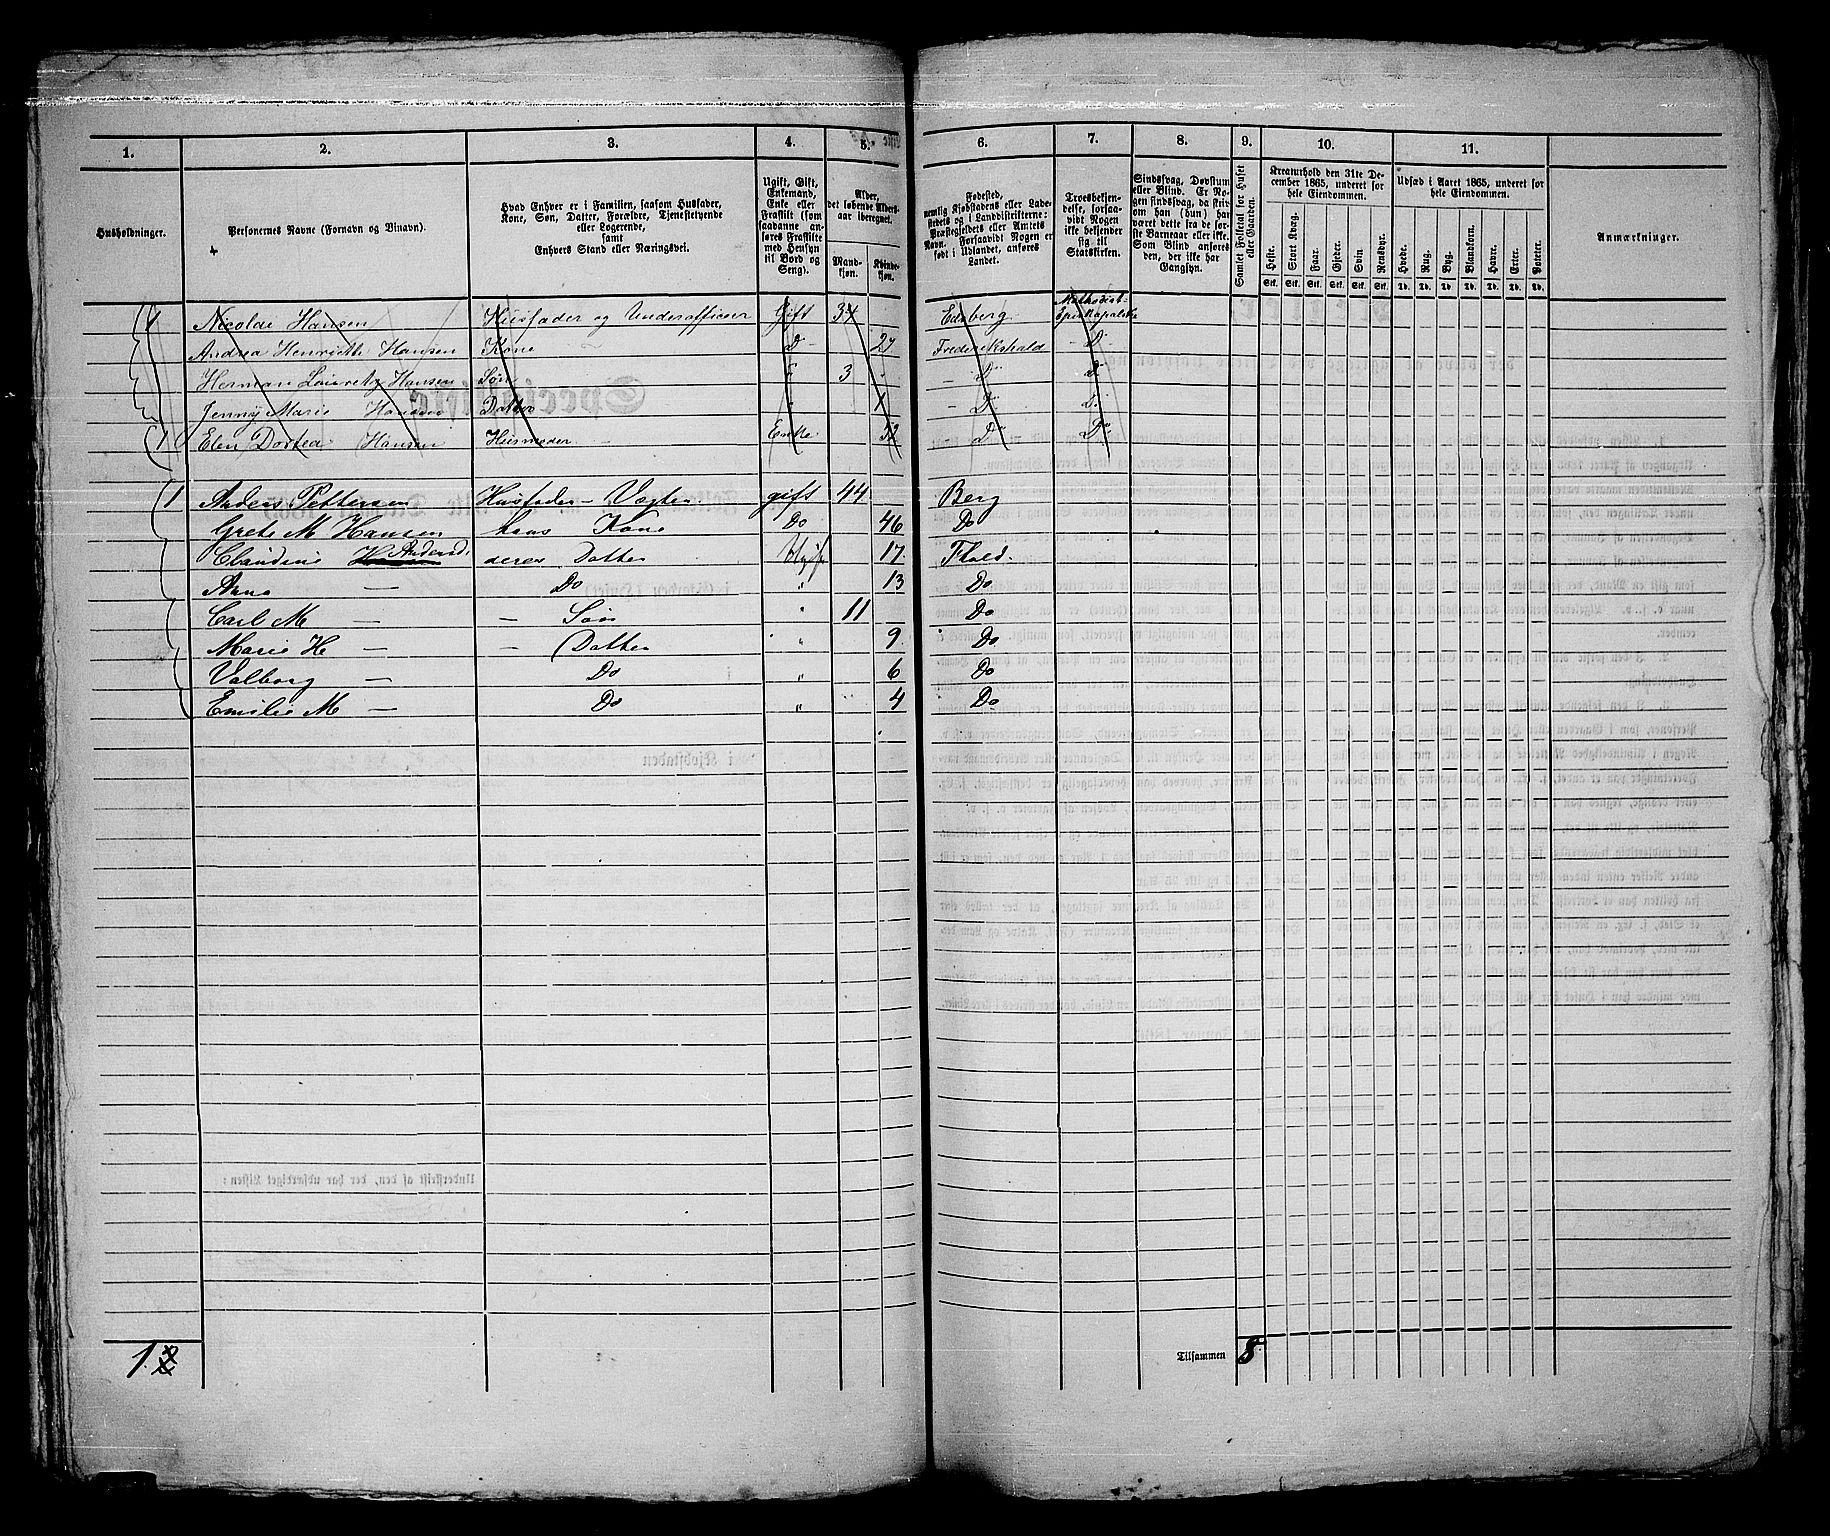 1. 2. 3. 4. 5. 6. 7. 8. 9. 10. 11.
Husholdninger.
Personernes Navne (Fornavn og Binavn).
Hvad Enhver er i Familien, saasom Husfader,
Kone, Søn, Datter, Forældre, Tjenestetyende
eller Logerende,
samt
Enhvers Stand eller Næringsvei.
Ugift, Gift,
Enkemand,
Enke eller
Fraskilt (som
saadanne an-
føres Fraskilte
med Hensyn
til Bord og
Seng).
Alder,
det løbende Alders-
aar iberegnet.
Mand-
kjøn.
Kvinde-
kjøn.
Fødested,
nemlig Kjøbstadens eller Lade-
stedets og i Landdistrikterne:
Præstegjeldets eller Amtets
Navn. Forsaavidt Nogen er
født i Udlandet, anføres
Landet.
Troesbekjen-
delse, forsaa-
vidt Nogen
ikke bekjender
sig til
Statskirken.
Sindssvag, Døvstum
eller Blind. Er No-
gen sindssvag, da skriv
om han (hun) har
været dette fra de før-
ste Barneaar eller ikke.
Som Blind anføres
den, der ikke har
Gangsyn.
Samlet Folketal for Huset
eller Gaarden.
Kreaturhold den 31te De-
cember 1865, underet for
hele Eiendommen.
Heste. Stort Kvæg. Faar. Gjeder. Svin. Rensdyr.
Stk. Stk. Stk. Stk. Stk. Stk.
Udsæd i Aaret 1865, underet for
hele Eiendommen.
Hvede. Rug. Byg. Blandkorn. Havre. Erter. Poteter.
Td. Td. Td. Td. Td. Td. Td.
Anmærkninger.
1 Nicolai Hansen Husfader og Underofficer Gift 34 Edsberg Methodist-Episkopalske
Andrea Henriette Hansen Kone D 27 Frederikshald D
Herman Hansen Søn 3 D D
Jenny Marie Hansen Datter 1 D D
1 Elen Dortea Hansen Husmoder Enke 52 D D
1 Anders Pettersen Husfader - Vægter gift 44 Berg
Grete M Hansen hans Kone Do 46 Do
Claudine Andersd. deres Datter Ugift 17 Fhald.
Anna — Do " 13 Do
Carl M — — Søn " 11 Do
Marie H — — Datter " 9 Do
Valborg — Do " 6 Do
Emilie M — Do " 4 Do
1. Tilsammen 8.